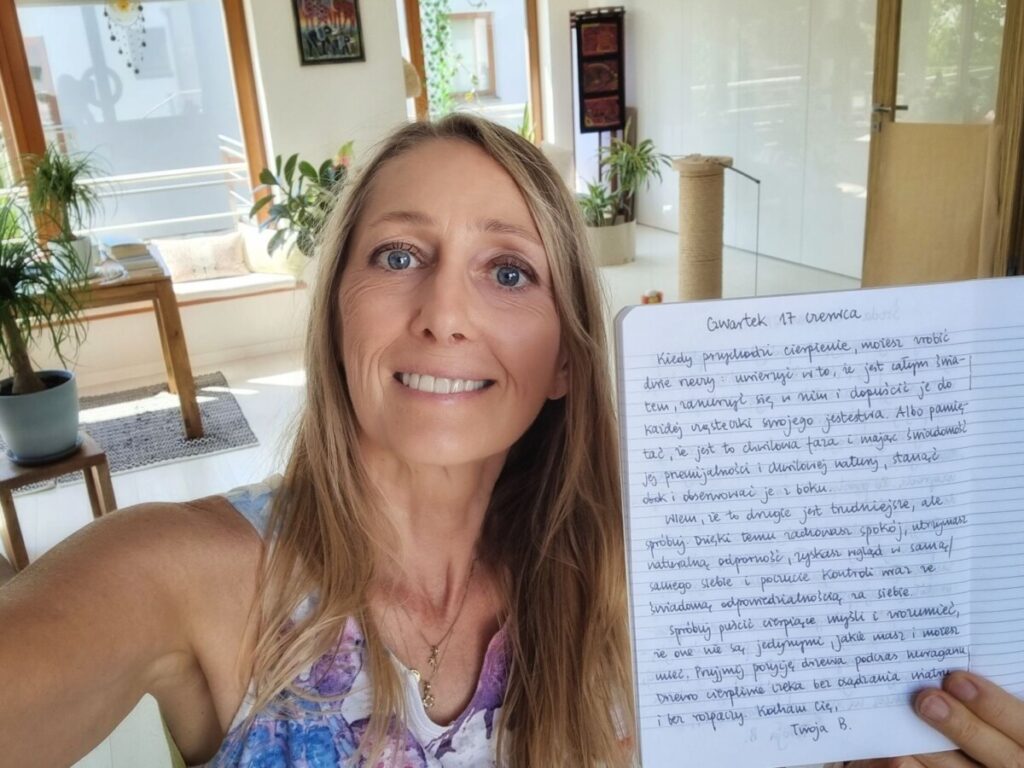 Czwartek 17 czerwca
Kiedy przychodzi cierpienie, możesz zrobić
dwie rzeczy: uwierzyć w to, że jest całym świa-
tem, zanurzyć się w nim i dopuścić je do
każdej cząsteczki swojego jestestwa. Albo pamię-
tać, że jest to chwilowa faza i mając świadomość
jej przemijalności i chwilowej natury, stanąć
obok i obserwować je z boku.
Wiem, że to drugie jest trudniejsze, ale
spróbuj. Dzięki temu zachowasz spokój, utrzymasz
naturalną odporność, zyskasz wgląd w samą/
samego siebie i poczucie kontroli wraz ze
świadomą odpowiedzialnością za siebie.
Spróbuj puścić cierpiące myśli i zrozumieć,
że one nie są jedynymi, jakie masz i możesz
mieć. Przyjmij pozycję drzewa podczas huraganu.
Drzewo cierpliwie czeka bez osądzania wiatru
i bez rozpaczy. Kocham Cię,
Twoja B.